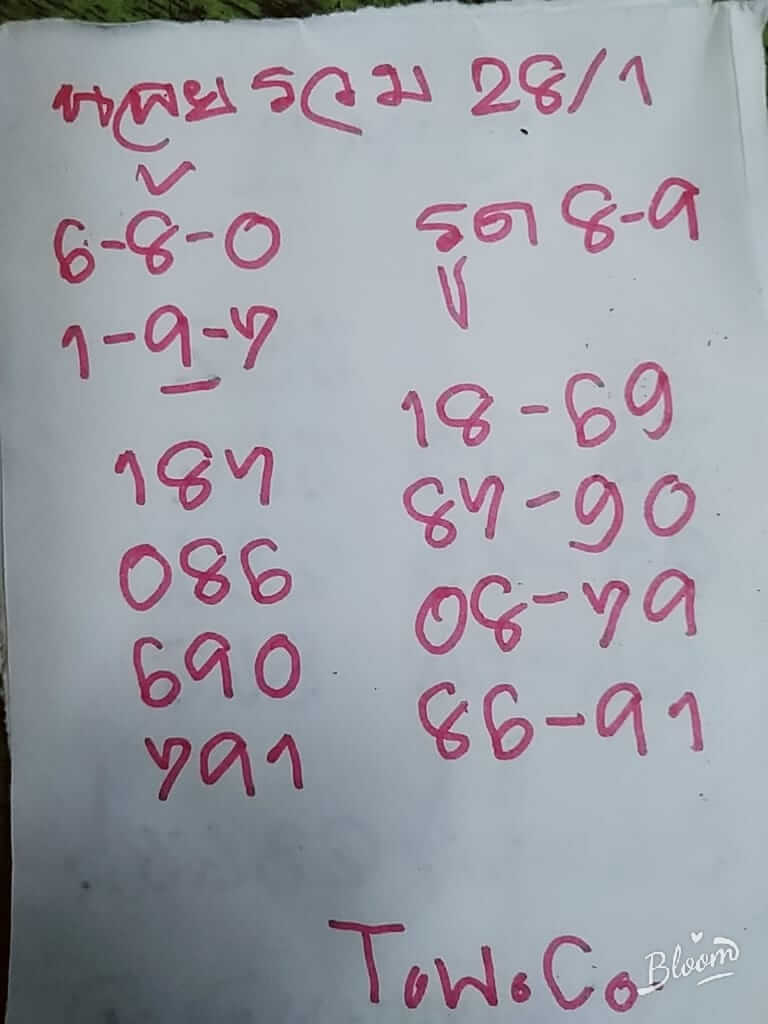 หวย รวม 28/1
6-8-0
รูด 8-9
1-9-7
18-69
187
87-90
086
08-79
690
86-91
791
T.W.Co.
Bloom